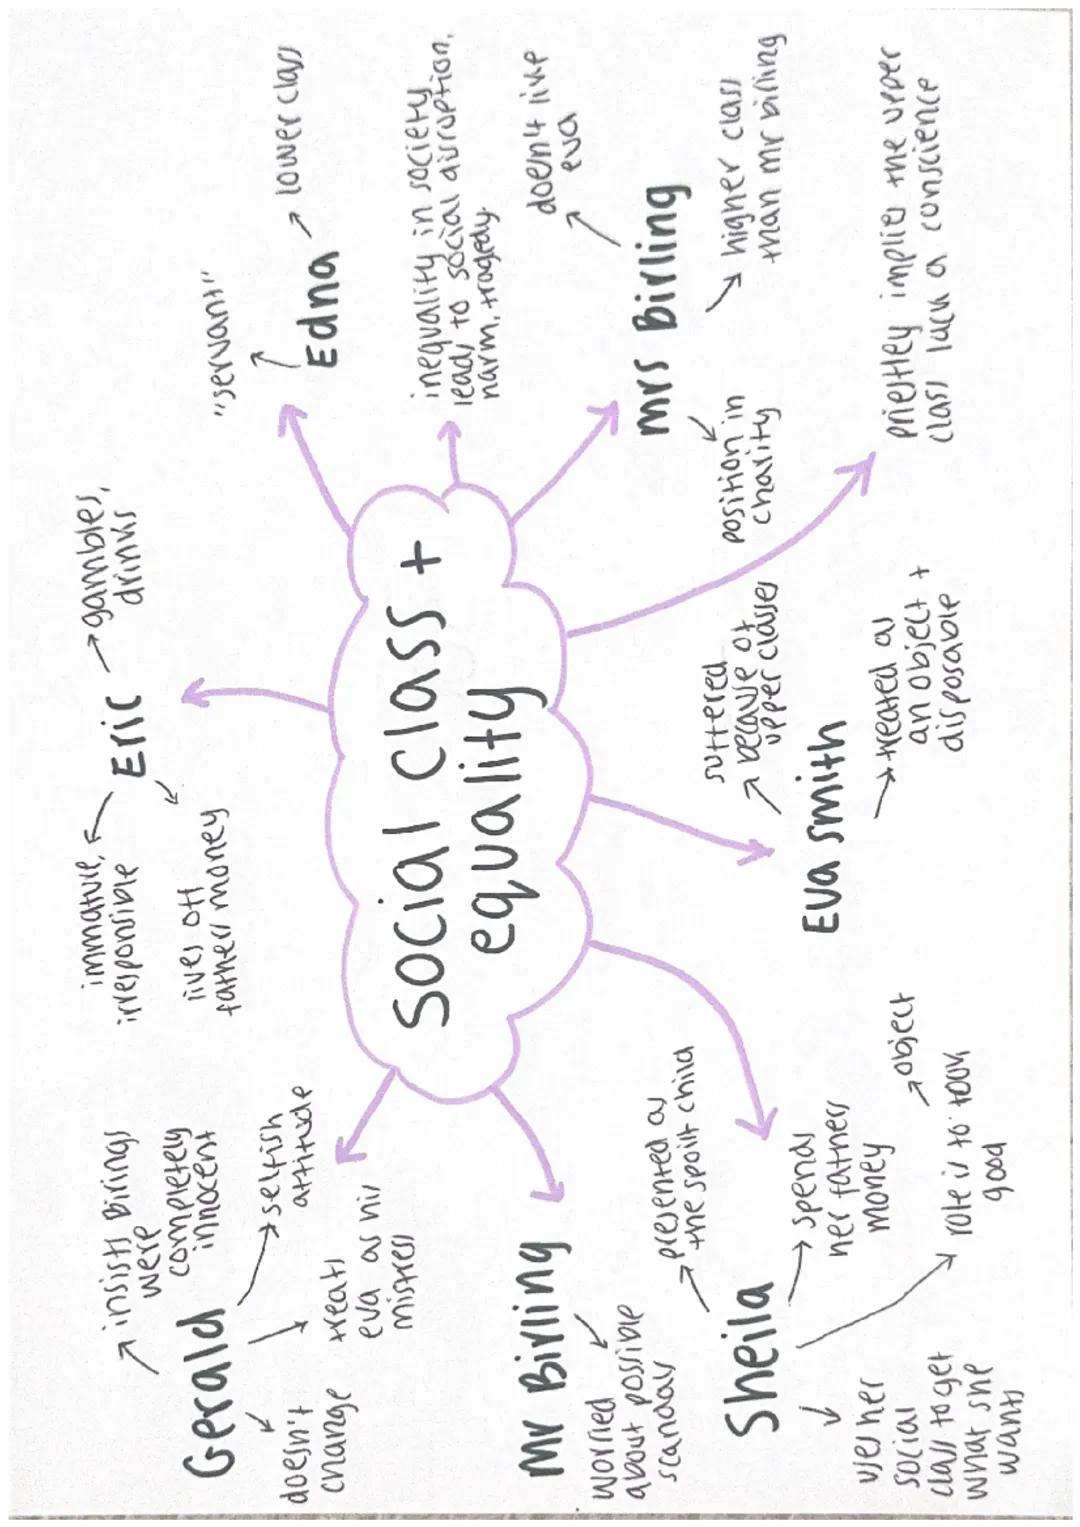 social class +
equality
Gerald
insists Birlings
were
completely
innocent
selfish
attitude
treats
eva as his
mistress
doesn't
change
Eric
immature,
irresponsible
gambles,
drinks
lives off
fathers money
Edna
"servant"
lower class
inequality in society
leads to social disruption,
harm, tragedy.
Mrs Birling
doesn't like
eva
higher class
than mr birling
position in
charity
priestley implies the upper
class lack a conscience
Eva smith
suffered
because of
upper classes
treated as
an object +
disposable
Sheila
presented as
the spoilt child
spends
her fathers
money
role is to look
good
object
uses her
social
class to get
what she
wants
Mr Birling
worried
about possible
scandals